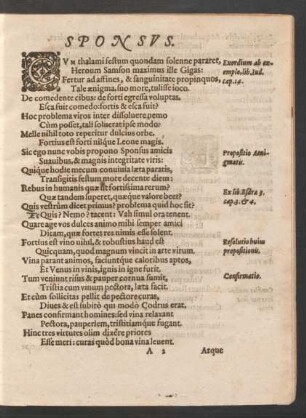 SPONSVS.
CVM thalami festum quondam solenne pararet,
Heroum Samson maximus ille Gigas:
Fertur ad affines, & sanguinitate propinquos,
Tale ænigma, suo more, tulisse ioco.
De comedente cibus: de forti egressa voluptas.
Esca fuit comedo: fortis & esca fuit?
Hoc problema viros inter dissoluere, nemo
Cùm posset, tali soluerat ipse modo:
Melle nihil toto reperitur dulcius orbe.
Fortius est forti nilque Leone magis.
Sic ego nunc vobis propono Sponsus amicis
Suauibus, & magnis integritate viris:
Quique hodie mecum conuiuia læta paratis,
Transigitis festum more decente diem:
Rebus in humanis quæ est fortissima rerum?
Quæ tandem superet, quæque valore beet?
Quis vestrûm dicet primus? problema quid hoc sit?
Et Quis? Nemo? tacent: Vah simul ora tenent.
Quare age vos dulces animo mihi semper amici
Dicam, quæ fortes res nimis esse solent.
Fortius est vino nihil, & robustius haud est
Quicquam, quod magnum vincit in arte virum.
Vina parant animos, faciuntque caloribus aptos,
Et Venus in vinis, ignis in igne furit.
Tum veniunt risus & pauper cornua sumit,
Tristia cum vinum pectora, læta facit.
Et cùm sollicitas pellit de pectore curas,
Diues & est subitò qui modò Codrus erat.
Panes confirmant homines: sed vina relaxant
Pectora, pauperiem, tristitiamque fugant.
Hinc tres victutes olim dixêre priores
Esse meri: curas quòd bona vina leuent.
A 2 Atque
Exordium ab exemplo, lib. Iud. cap. 14.
Propositio Ænigmatis.
Ex lib. Esdræ 3. cap. 3. & 4.
Resolutio huius propositionis.
Confirmatio.